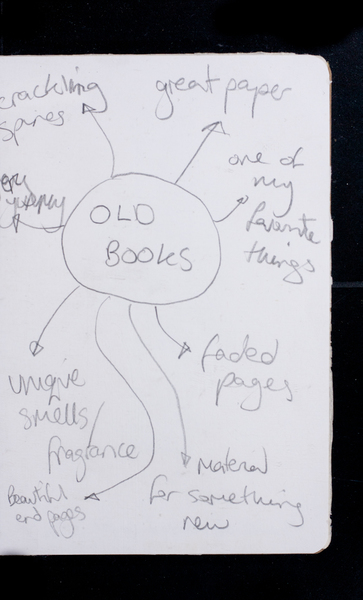 crackling
spines
great paper
one of
my
favourite
things
OLD
BOOKS
unique
smells/
fragrance
faded
pages
Beautiful
end pages
Material
for something
new